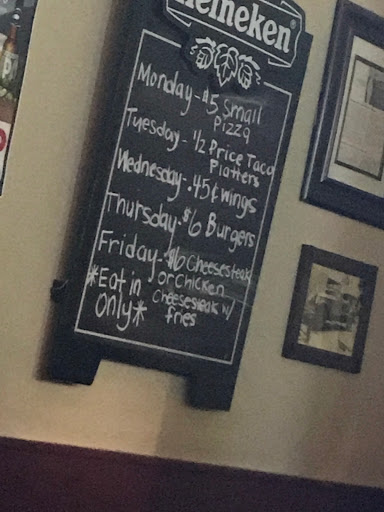 Heineken
Monday - $5 Small
Pizza
Tuesday - 1/2 Price Taco
Platters
Wednesday - .45¢ wings
Thursday - $6 Burgers
Friday - $6 Cheesesteak
or chicken
cheesesteak w/
fries
*Eat in
only*